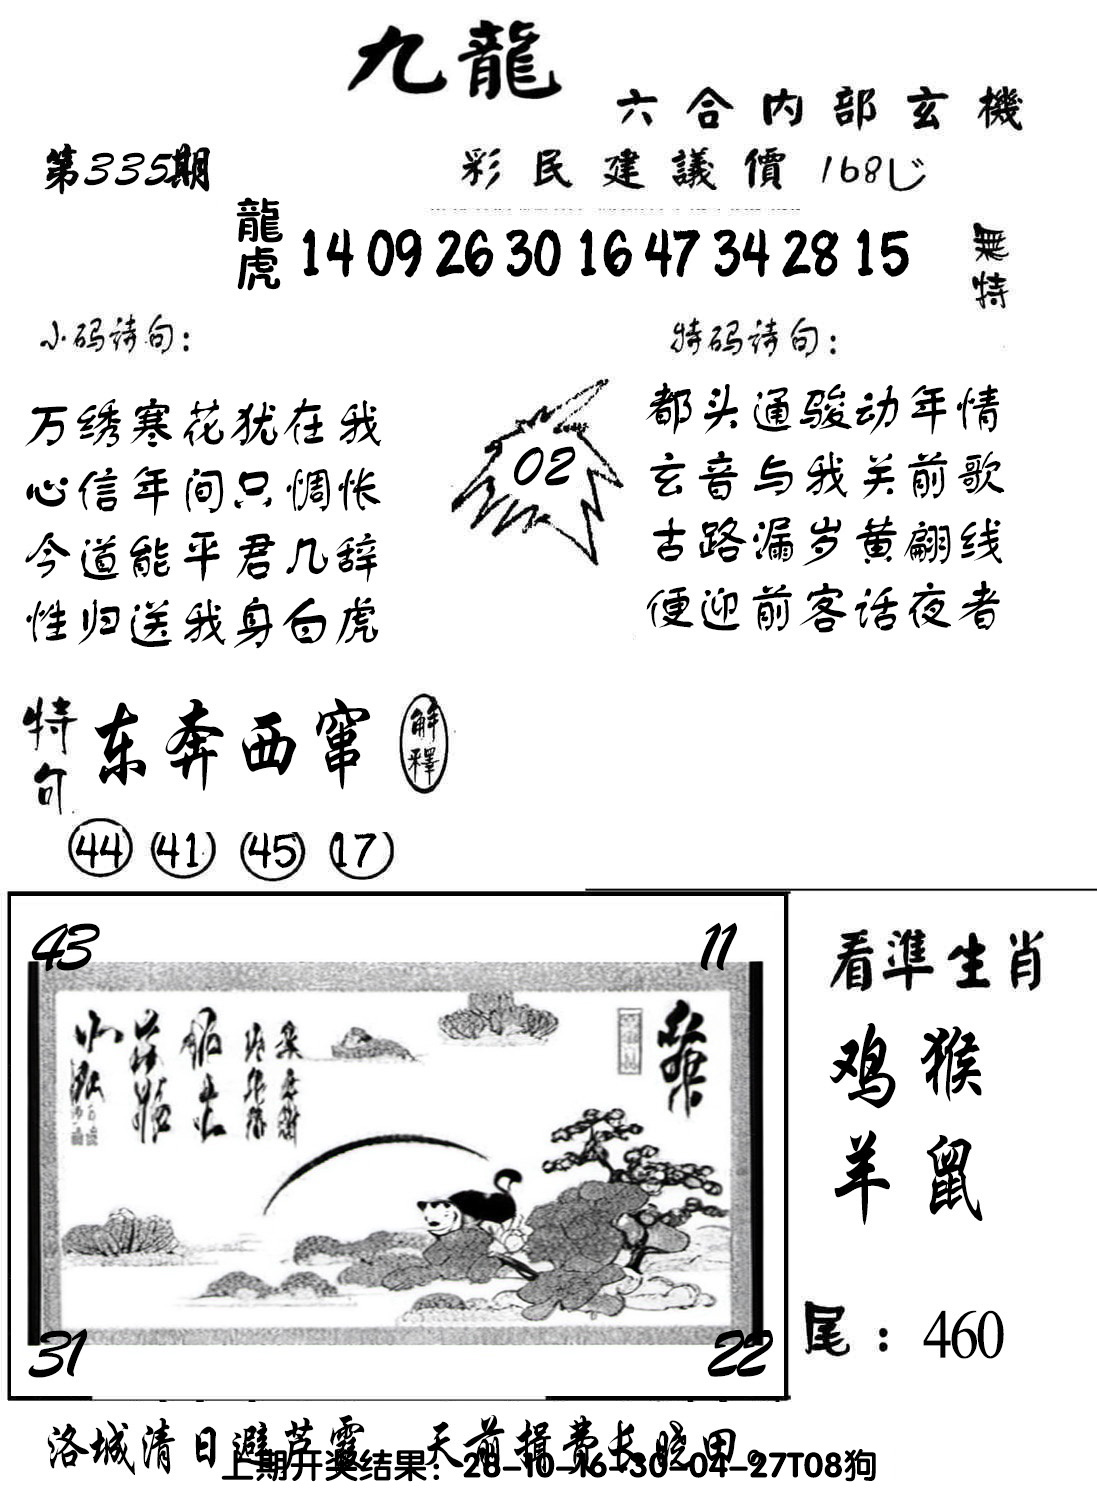 九龍
六合内部玄機
第335期
彩民建議價 168じ
龍虎 14 09 26 30 16 47 34 28 15 無特
小码诗句：
万绣寒花犹在我
心信年间只惆怅
今道能平君几辞
性归送我身白虎
02
特码诗句：
都头通骏动年情
玄音与我关前歌
古路漏岁黄翩线
便迎前客话夜者
特句 东奔西窜 解釋
44 41 45 17
43 11
31 22
看準生肖
鸡猴
羊鼠
尾：460
洛城清日避芦靈 天前揖费长晓田。
上期开奖结果：28-10-16-30-04-27T08狗